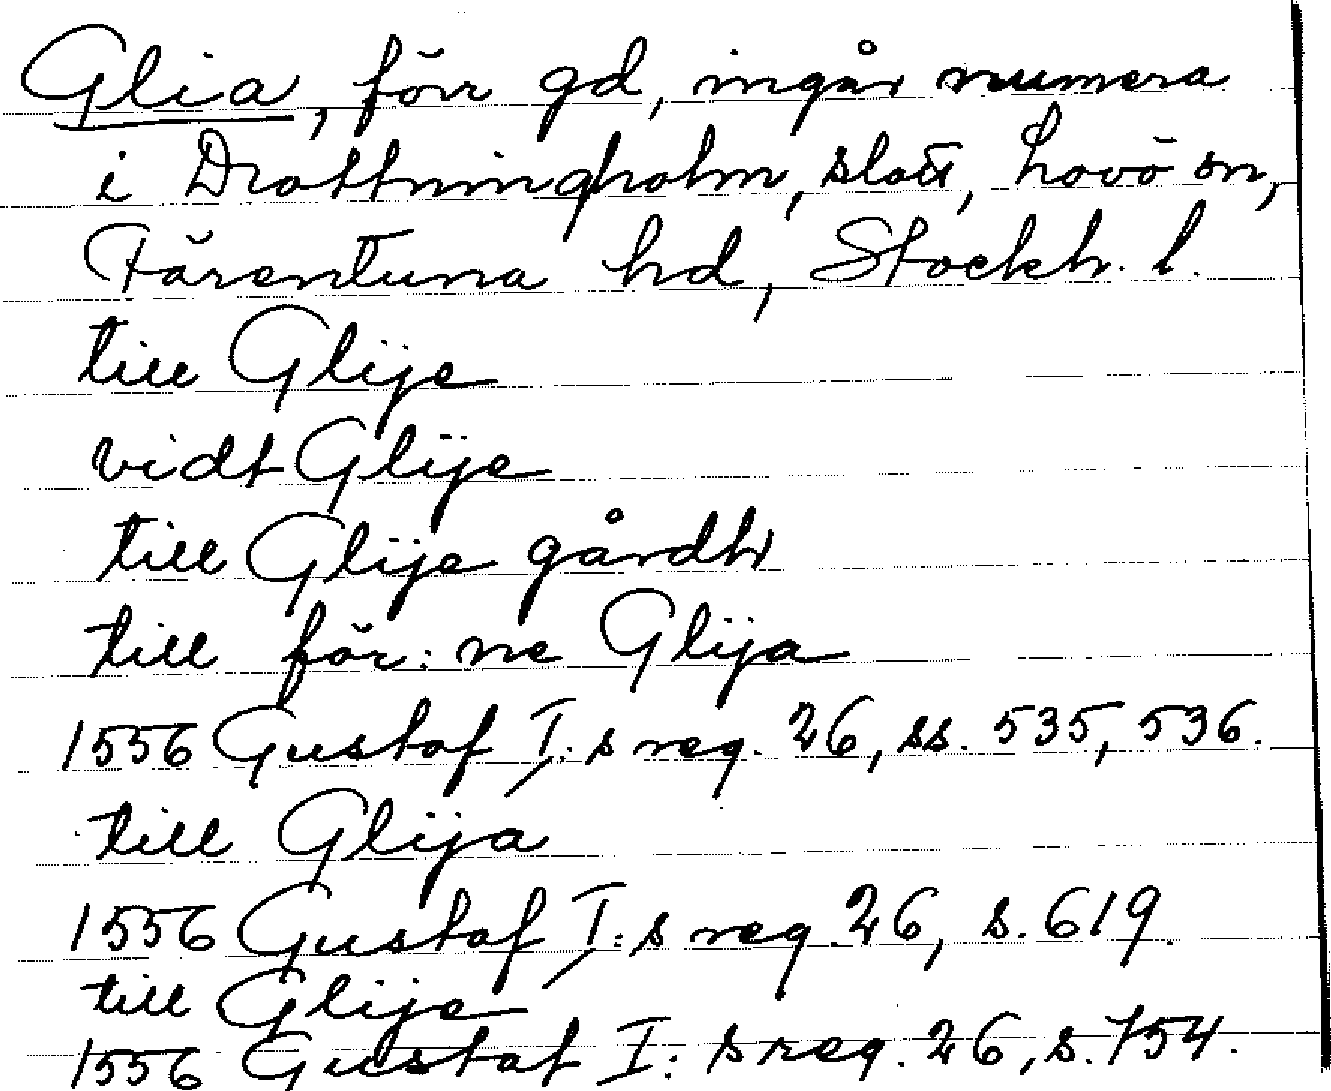 Glia, förr gd, ingår numera
i Drottningholm, slott, Lovö sn,
Färentuna hd, Stockh. l.
till Glije
vidt Glije
till Glije gårdh
till för: ne Glija
1556 Gustaf I: s reg. 26, ss. 535, 536.
till Glija
1556 Gustaf I: s reg. 26, s. 619.
till Glije
1556 Gustaf I: s reg. 26, s. 754.